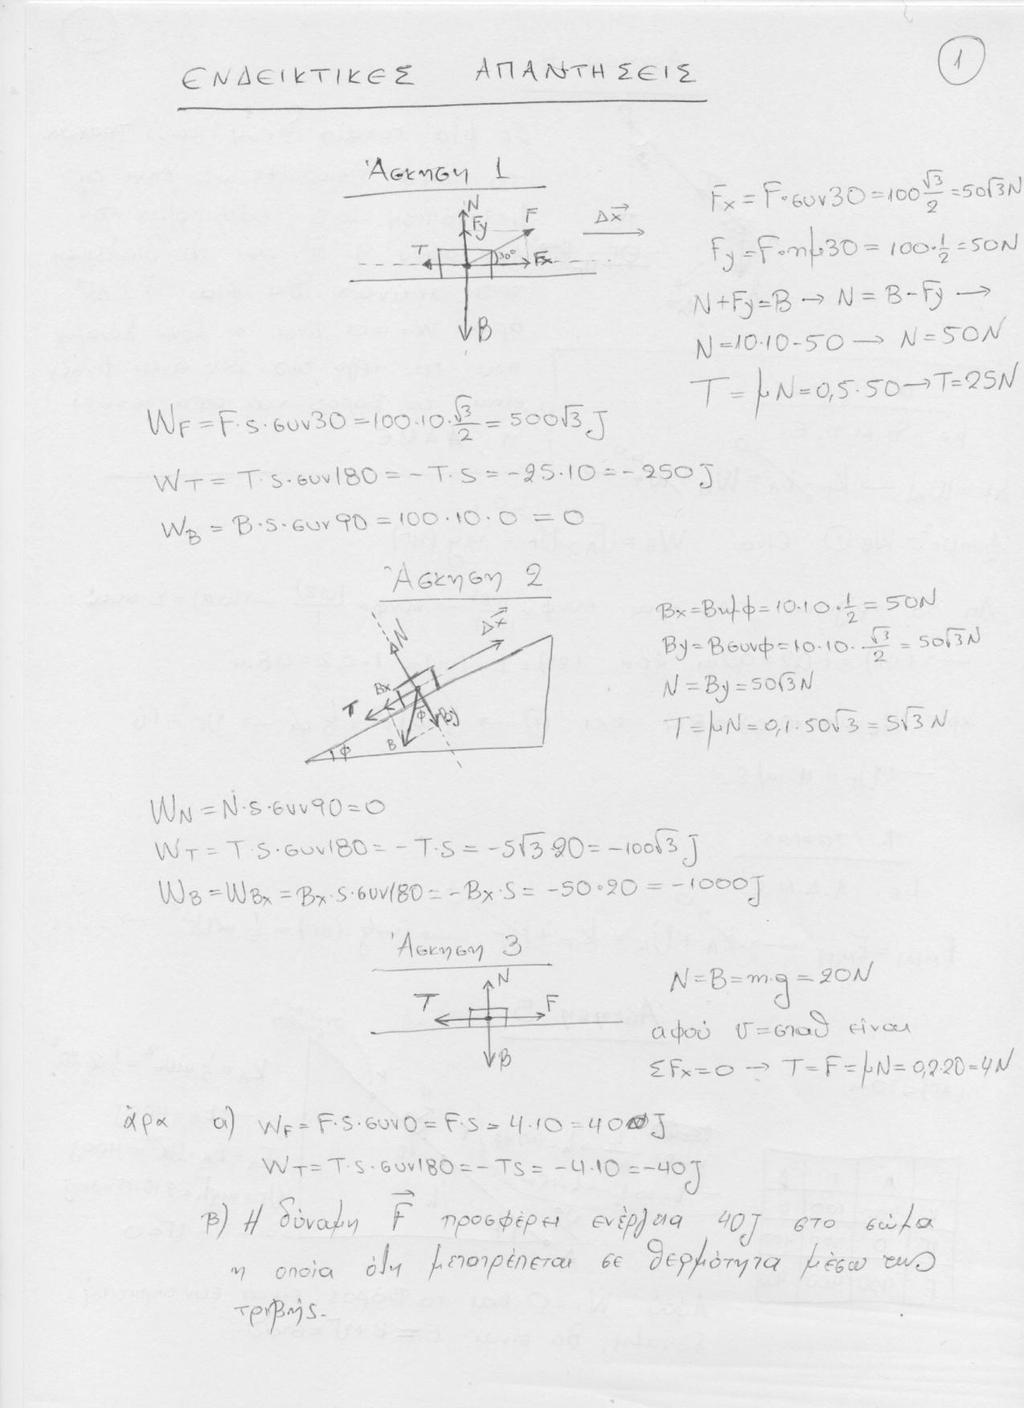 1
ΕΝΔΕΙΚΤΙΚΕΣ ΑΠΑΝΤΗΣΕΙΣ
Άσκηση 1
N
Fy
F
Δx
T
30°
Fx
B
Fx = F·συν30 = 100 √3/2 = 50√3N
Fy = F·ημ30 = 100·1/2 = 50N
N+Fy=B → N = B-Fy →
N=10·10-50 → N=50N
T = μN = 0,5·50 → T=25N
WF = F·s·συν30 = 100·10·√3/2 = 500√3 J
WT = T·s·συν180 = -T·s = -25·10 = -250J
WB = B·s·συν90 = 100·10·0 = 0
Άσκηση 2
N
Δx
Bx
T
φ
By
B
φ
Bx = Bημφ = 10·10·1/2 = 50N
By = Bσυνφ = 10·10·√3/2 = 50√3N
N = By = 50√3N
T = μN = 0,1·50√3 = 5√3 N
WN = N·s·συν90 = 0
WT = T·s·συν180 = -T·s = -5√3·20 = -100√3 J
WB = WBx = Bx·s·συν180 = -Bx·s = -50·20 = -1000J
Άσκηση 3
N
T
F
B
N = B = m·g = 20N
αφού υ=σταθ είναι
ΣFx=0 → T=F=μN=0,2·20=4N
άρα α) WF = F·s·συν0 = F·s = 4·10 = 40J
WT = T·s·συν180 = -Ts = -4·10 = -40J
β) Η δύναμη F προσφέρει ενέργεια 40J στο σώμα
η οποία όλη μετατρέπεται σε θερμότητα μέσω της
τριβής.